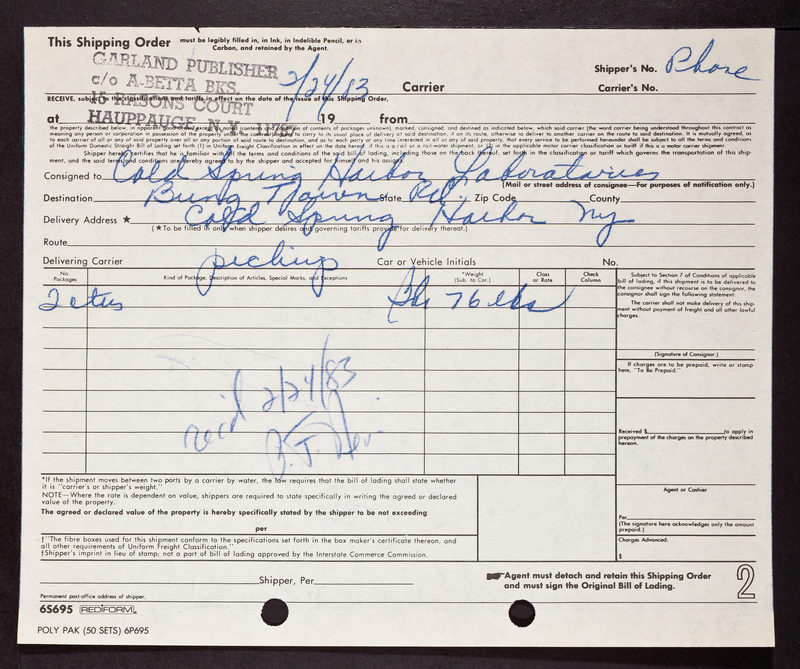 This Shipping Order must be legibly filled in, in Ink, in Indelible Pencil, or in Carbon, and retained by the Agent.
Shipper's No. Phone
GARLAND PUBLISHER
c/o A-BETTA BKS. 2/24/83
Carrier Carrier's No.
RECEIVE, subject to the classifications and tariffs in effect on the date of the issue of this Shipping Order,
15 PARSONS COURT
at 19 from
HAUPPAUGE, N.Y. 11787
the property described below, in apparent good order, except as noted (contents and condition of contents of packages unknown), marked, consigned, and destined as indicated below, which said carrier (the word carrier being understood throughout this contract as
meaning any person or corporation in possession of the property under the contract) agrees to carry to its usual place of delivery at said destination, if on its route, otherwise to deliver to another carrier on the route to said destination. It is mutually agreed, as
to each carrier of all or any of said property over all or any portion of said route to destination, and as to each party at any time interested in all or any of said property, that every service to be performed hereunder shall be subject to all the terms and conditions
of the Uniform Domestic Straight Bill of Lading set forth (1) in Uniform Freight Classification in effect on the date hereof, if this is a rail or a rail-water shipment, or (2) in the applicable motor carrier classification or tariff if this is a motor carrier shipment.
Shipper hereby certifies that he is familiar with all the terms and conditions of the said bill of lading, including those on the back thereof, set forth in the classification or tariff which governs the transportation of this ship-
ment, and the said terms and conditions are hereby agreed to by the shipper and accepted for himself and his assigns.
Consigned to Cold Spring Harbor Laboratories
(Mail or street address of consignee—For purposes of notification only.)
Destination Bung Town Rd. State Zip Code County
Delivery Address ★ Cold Spring Harbor NY
(★To be filled in only when shipper desires and governing tariffs provide for delivery thereat.)
Route
Delivering Carrier pickup Car or Vehicle Initials No.
No. Packages Kind of Package, Description of Articles, Special Marks, and Exceptions *Weight (Sub. to Cor.) Class or Rate Check Column
76 lbs
rec'd 2/24/83
Subject to Section 7 of Conditions of applicable
bill of lading, if this shipment is to be delivered to
the consignee without recourse on the consignor, the
consignor shall sign the following statement:
The carrier shall not make delivery of this ship-
ment without payment of freight and all other lawful
charges.
(Signature of Consignor.)
If charges are to be prepaid, write or stamp
here, "To Be Prepaid."
Received $ to apply in
prepayment of the charges on the property described
hereon.
Agent or Cashier
Per
(The signature here acknowledges only the amount
prepaid.)
Charges Advanced:
$
*If the shipment moves between two ports by a carrier by water, the law requires that the bill of lading shall state whether
it is "carrier's or shipper's weight."
NOTE—Where the rate is dependent on value, shippers are required to state specifically in writing the agreed or declared
value of the property.
The agreed or declared value of the property is hereby specifically stated by the shipper to be not exceeding
per
†"The fibre boxes used for this shipment conform to the specifications set forth in the box maker's certificate thereon, and
all other requirements of Uniform Freight Classification."
†Shipper's imprint in lieu of stamp; not a part of bill of lading approved by the Interstate Commerce Commission.
Shipper, Per
Agent must detach and retain this Shipping Order
and must sign the Original Bill of Lading.
2
Permanent post-office address of shipper.
6S695 REDIFORM
POLY PAK (50 SETS) 6P695